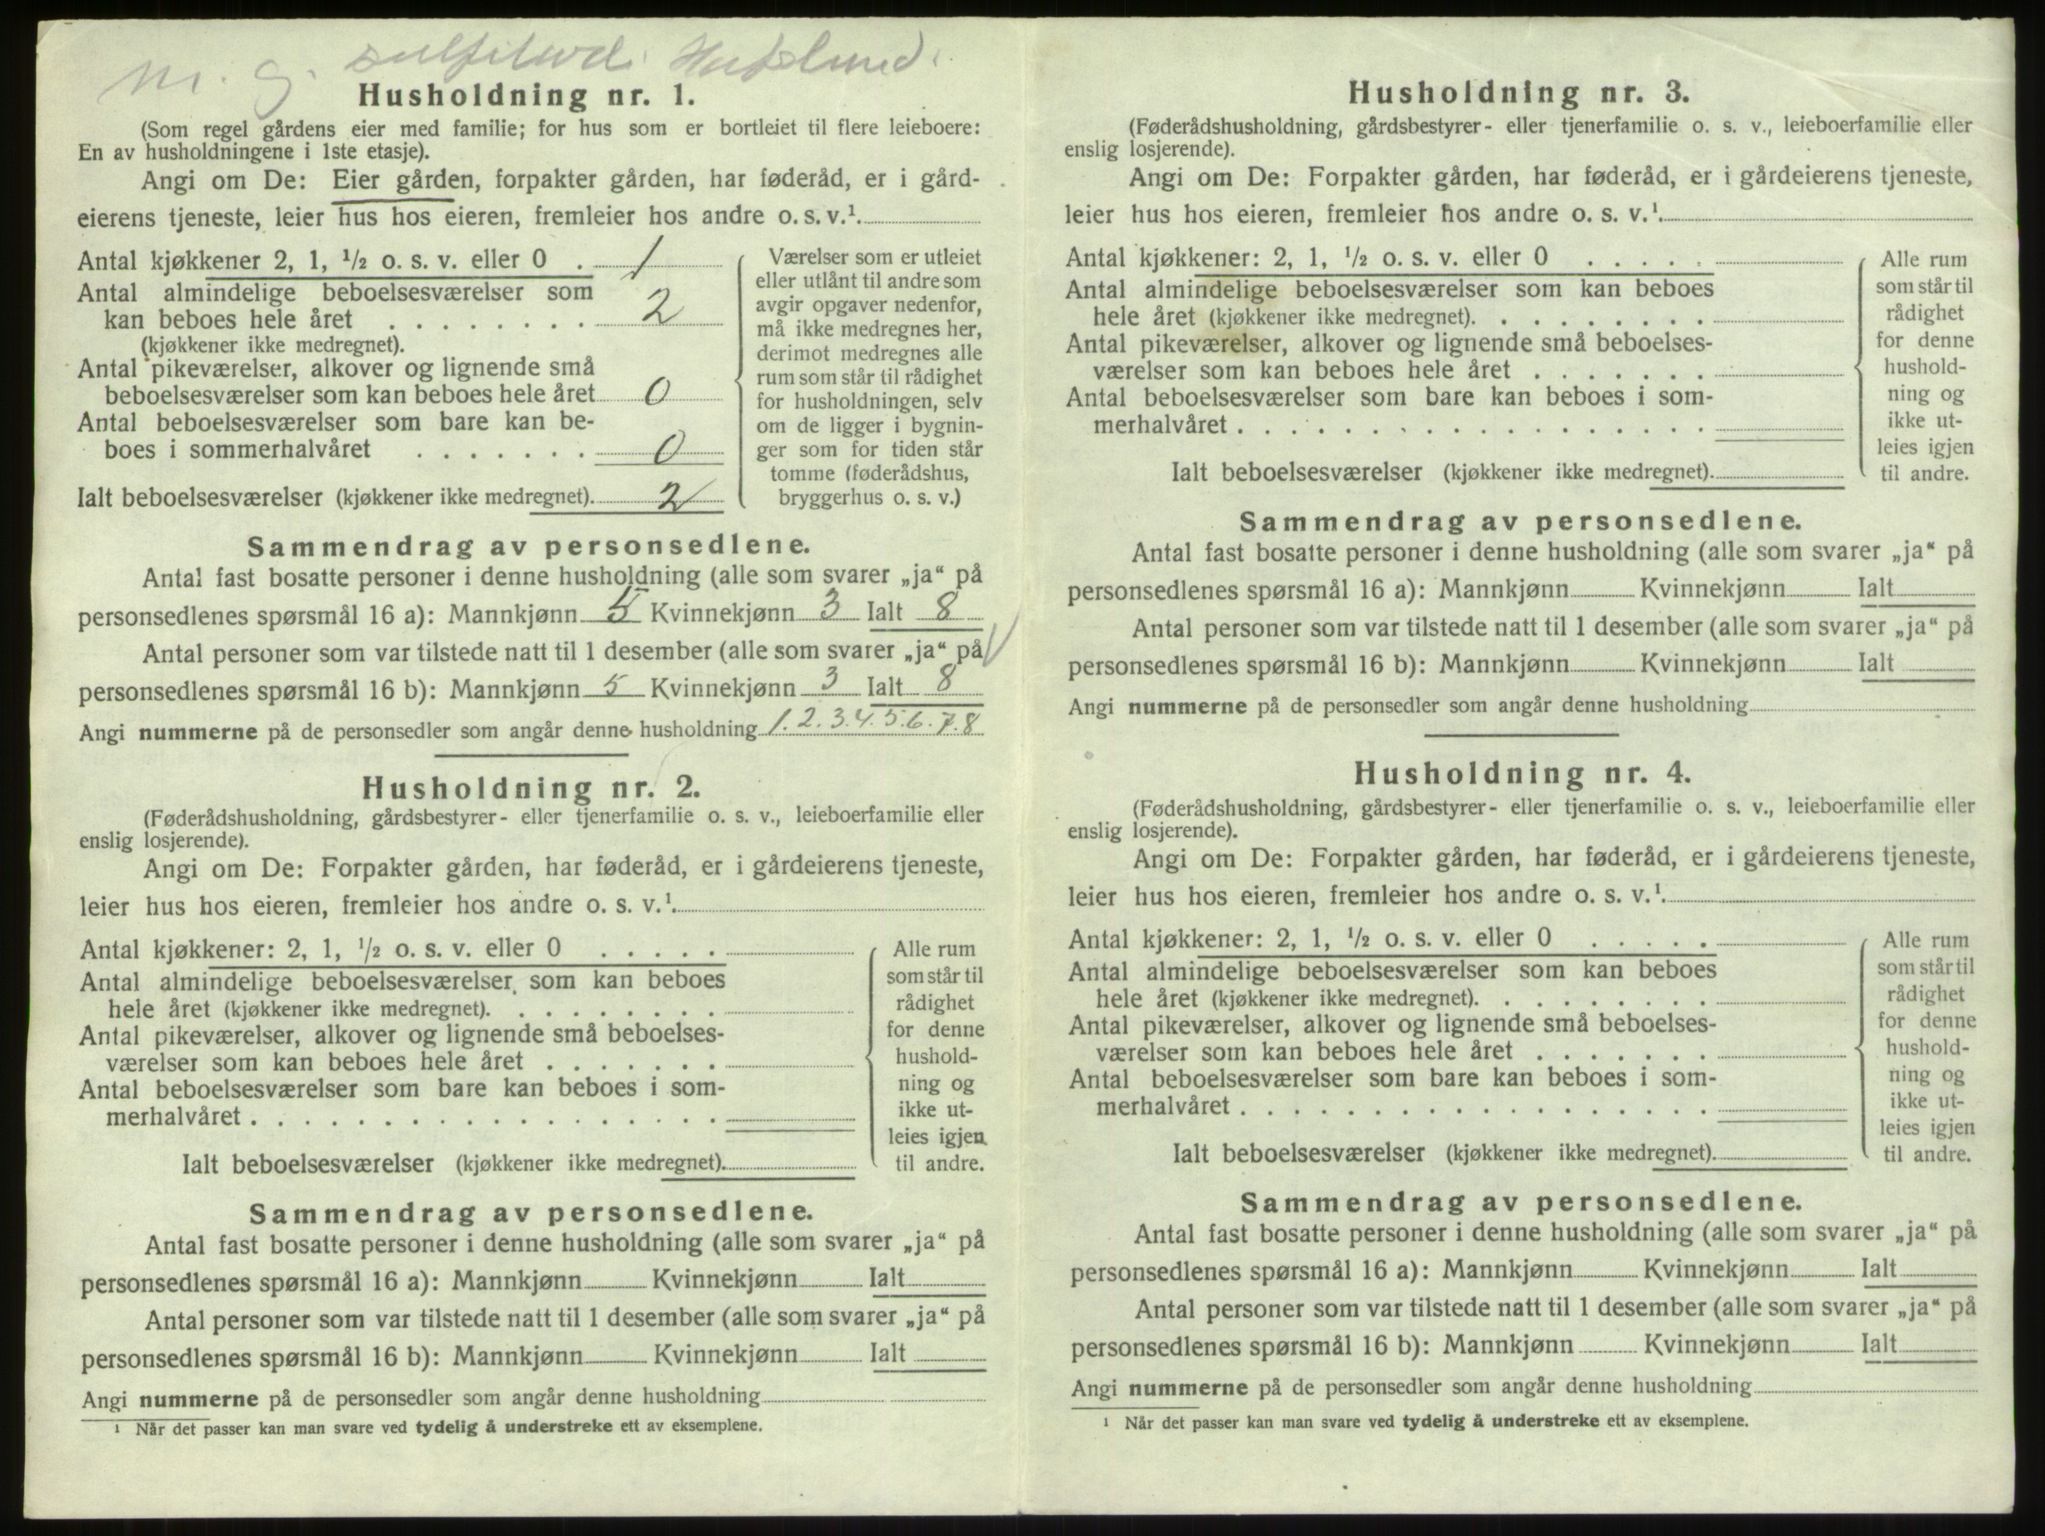 m. g. Hafslund.
Husholdning nr. 1.
(Som regel gårdens eier med familie; for hus som er bortleiet til flere leieboere:
En av husholdningene i 1ste etasje).
Angi om De: Eier gården, forpakter gården, har føderåd, er i gård-
eierens tjeneste, leier hus hos eieren, fremleier hos andre o. s. v.¹
Antal kjøkkener 2, 1, ½ o. s. v. eller 0 . 1
Antal almindelige beboelsesværelser som
kan beboes hele året . . . . . . . . 2
(kjøkkener ikke medregnet).
Antal pikeværelser, alkover og lignende små
beboelsesværelser som kan beboes hele året 0
Antal beboelsesværelser som bare kan be-
boes i sommerhalvåret . . . . . . . 0
Ialt beboelsesværelser (kjøkkener ikke medregnet). 2
Værelser som er utleiet
eller utlånt til andre som
avgir opgaver nedenfor,
må ikke medregnes her,
derimot medregnes alle
rum som står til rådighet
for husholdningen, selv
om de ligger i bygnin-
ger som for tiden står
tomme (føderådshus,
bryggerhus o. s. v.)
Sammendrag av personsedlene.
Antal fast bosatte personer i denne husholdning (alle som svarer „ja“ på
personsedlenes spørsmål 16 a): Mannkjønn 5 Kvinnekjønn 3 Ialt 8
Antal personer som var tilstede natt til 1 desember (alle som svarer „ja“ på
personsedlenes spørsmål 16 b): Mannkjønn 5 Kvinnekjønn 3 Ialt 8
Angi nummerne på de personsedler som angår denne husholdning 1.2.3.4.5.6.7.8
Husholdning nr. 2.
(Føderådshusholdning, gårdsbestyrer- eller tjenerfamilie o. s. v., leieboerfamilie eller
enslig losjerende).
Angi om De: Forpakter gården, har føderåd, er i gårdeierens tjeneste,
leier hus hos eieren, fremleier hos andre o. s. v.¹
Antal kjøkkener: 2, 1, ½ o. s. v. eller 0 . . . . .
Antal almindelige beboelsesværelser som kan beboes
hele året (kjøkkener ikke medregnet). . . . . . . . .
Antal pikeværelser, alkover og lignende små beboelses-
værelser som kan beboes hele året . . . . . . .
Antal beboelsesværelser som bare kan beboes i som-
merhalvåret . . . . . . . . . . . . . . . . . .
Ialt beboelsesværelser (kjøkkener ikke medregnet).
Alle rum
som står til
rådighet
for denne
hushold-
ning og
ikke ut-
leies igjen
til andre.
Sammendrag av personsedlene.
Antal fast bosatte personer i denne husholdning (alle som svarer „ja“ på
personsedlenes spørsmål 16 a): Mannkjønn Kvinnekjønn Ialt
Antal personer som var tilstede natt til 1 desember (alle som svarer „ja“ på
personsedlenes spørsmål 16 b): Mannkjønn Kvinnekjønn Ialt
Angi nummerne på de personsedler som angår denne husholdning
¹ Når det passer kan man svare ved tydelig å understreke ett av eksemplene.
Husholdning nr. 3.
(Føderådshusholdning, gårdsbestyrer- eller tjenerfamilie o. s. v., leieboerfamilie eller
enslig losjerende).
Angi om De: Forpakter gården, har føderåd, er i gårdeierens tjeneste,
leier hus hos eieren, fremleier hos andre o. s. v.¹
Antal kjøkkener: 2, 1, ½ o. s. v. eller 0 . . . . .
Antal almindelige beboelsesværelser som kan beboes
hele året (kjøkkener ikke medregnet). . . . . . . . .
Antal pikeværelser, alkover og lignende små beboelses-
værelser som kan beboes hele året . . . . . . .
Antal beboelsesværelser som bare kan beboes i som-
merhalvåret . . . . . . . . . . . . . . . . . .
Ialt beboelsesværelser (kjøkkener ikke medregnet).
Alle rum
som står til
rådighet
for denne
hushold-
ning og
ikke ut-
leies igjen
til andre.
Sammendrag av personsedlene.
Antal fast bosatte personer i denne husholdning (alle som svarer „ja“ på
personsedlenes spørsmål 16 a): Mannkjønn Kvinnekjønn Ialt
Antal personer som var tilstede natt til 1 desember (alle som svarer „ja“ på
personsedlenes spørsmål 16 b): Mannkjønn Kvinnekjønn Ialt
Angi nummerne på de personsedler som angår denne husholdning
Husholdning nr. 4.
(Føderådshusholdning, gårdsbestyrer- eller tjenerfamilie o. s. v., leieboerfamilie eller
enslig losjerende).
Angi om De: Forpakter gården, har føderåd, er i gårdeierens tjeneste,
leier hus hos eieren, fremleier hos andre o. s. v.¹
Antal kjøkkener: 2, 1, ½ o. s. v. eller 0 . . . . .
Antal almindelige beboelsesværelser som kan beboes
hele året (kjøkkener ikke medregnet). . . . . . . . .
Antal pikeværelser, alkover og lignende små beboelses-
værelser som kan beboes hele året . . . . . . .
Antal beboelsesværelser som bare kan beboes i som-
merhalvåret . . . . . . . . . . . . . . . . . .
Ialt beboelsesværelser (kjøkkener ikke medregnet).
Alle rum
som står til
rådighet
for denne
hushold-
ning og
ikke ut-
leies igjen
til andre.
Sammendrag av personsedlene.
Antal fast bosatte personer i denne husholdning (alle som svarer „ja“ på
personsedlenes spørsmål 16 a): Mannkjønn Kvinnekjønn Ialt
Antal personer som var tilstede natt til 1 desember (alle som svarer „ja“ på
personsedlenes spørsmål 16 b): Mannkjønn Kvinnekjønn Ialt
Angi nummerne på de personsedler som angår denne husholdning
¹ Når det passer kan man svare ved tydelig å understreke ett av eksemplene.